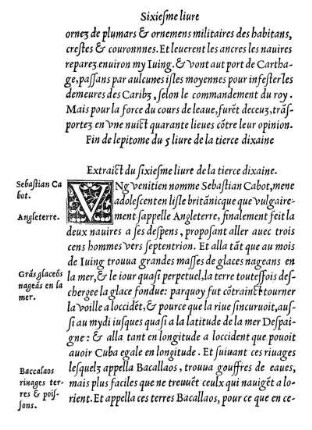 Sixiesme liure
ornez de plumars & ornemens militaires des habitans,
crestes & couronnnes. Et leuerent les ancres les nauires
reparez enuiron my Iuing. & vont aut port de Cartha-
ge, passans par aulcunes isles moyennes pour infester les
demeures des Caribz, selon le commandement du roy.
Mais pour la force du cours de leaue, furẽt deceuz, trãs-
portez en vne nuict quarante lieues cõtre leur opinion.
Fin de lepitome du 5 liure de la tierce dixaine
Extraict du sixiesme liure de la tierce dixaine.
Sebastian Ca
bot.
Angleterre.
Grãs glaceõs
nageãs en la
mer.
Baccalaos
riuages ter-
res & pois-
sons.
VNg venitien nomme Sebastian Cabot, mene
adolescent en lisle britãnicque que vulgaire-
ment sappelle Angleterre, finalement feit la
deux nauires a ses despens, proposant aller auec trois
cens hommes vers septentrion. Et alla tãt que au mois
de Iuing trouua grandes masses de glaces nageans en
la mer, & le iour quasi perpetuel, la terre toutesfois des-
chergee la glace fondue: parquoy fut cõtrainct tourner
la voille a loccidẽt, & pource que la riue sincuruoit, aus-
si au mydi iusques quasi a la latitude de la mer Despai-
gne: & alla tant en longitude a loccident que pouoit
auoir Cuba egale en longitude. Et suiuant ces riuages
lesquelz appella Bacallaos, trouua gouffres de eaues,
mais plus faciles que ne treuuẽt ceulx qui nauigẽt a lo-
rient. Et appella ces terres Bacallaos, pour ce que en ce-